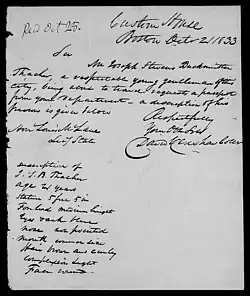 Recd Oct 25.
Custom House
Boston Octr 21 1833
Sir
Mr Joseph Stevens Buckminster
Thacher, a respectable young gentleman of this
city, being about to travel requests a passport
from your Department - a description of his
person is given below
Respectfully
Your Obt Servt
David Henshaw Collr
Hon Louis McLane
Secy State
description of
J. S. B. Thacher
age 21 years
Stature 5 feet 5 in
Forehead medium height
Eyes dark blue
nose pointed
mouth common size
Hair brown and curly
complexion light
Face round